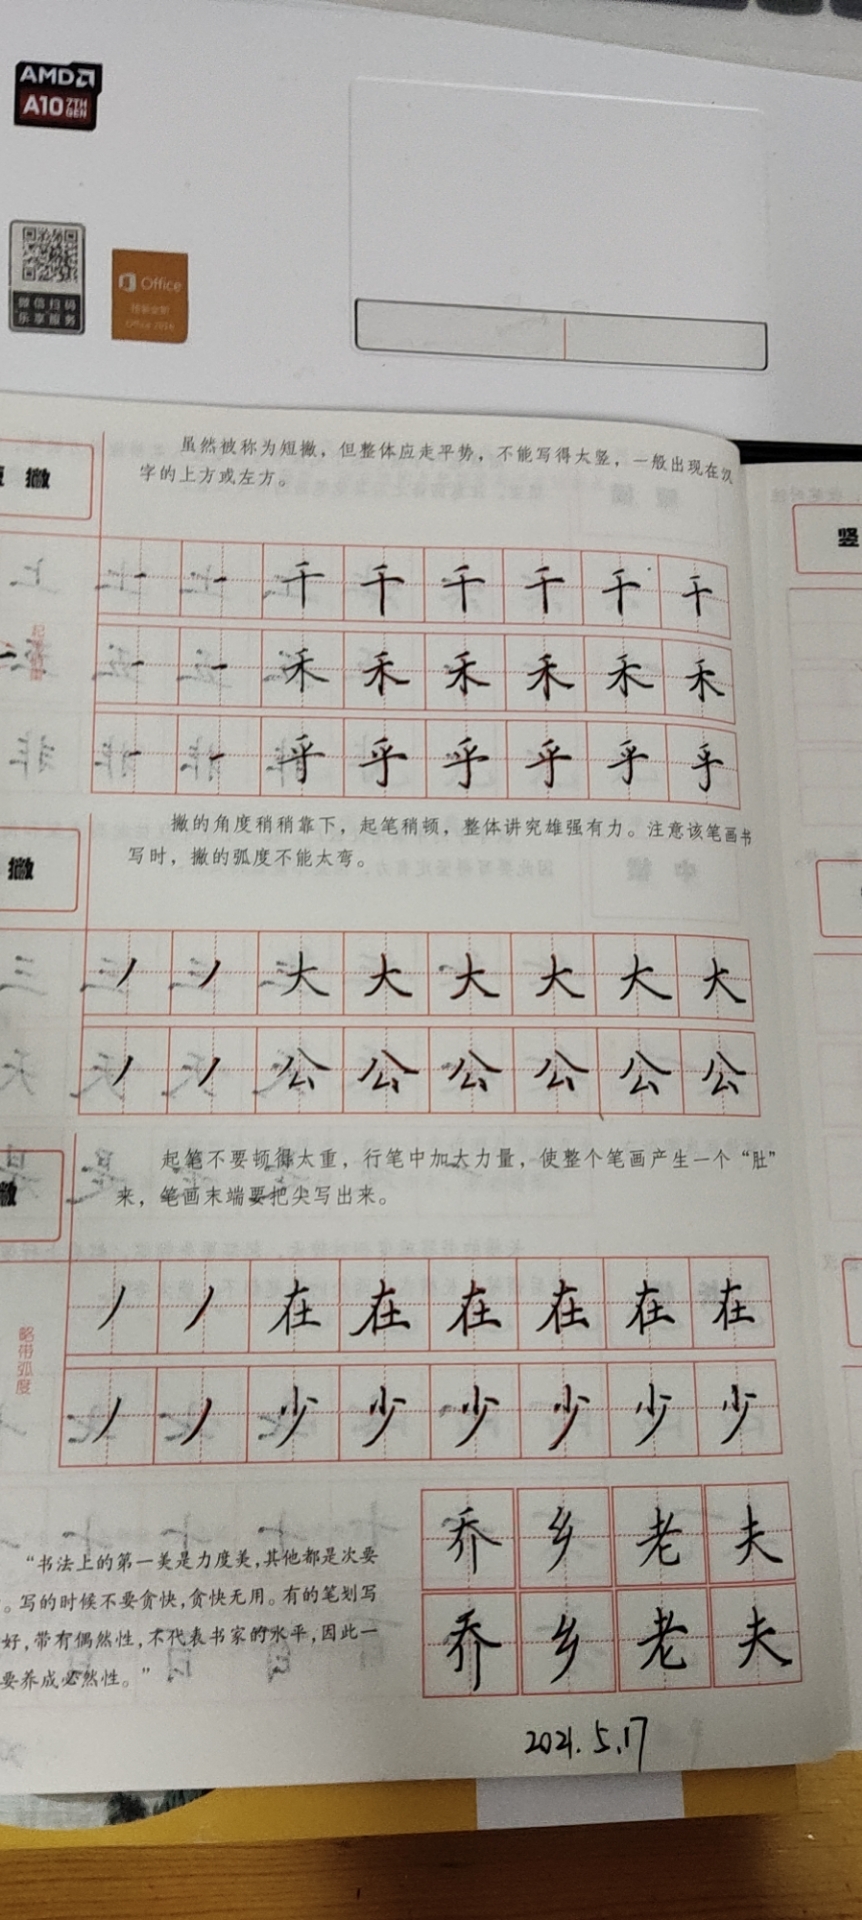 AMD
A10 7TH GEN
微信扫码
乐享服务
Office
Office 2016
短撇
虽然被称为短撇，但整体应走平势，不能写得太竖，一般出现在汉
字的上方或左方。
竖
千千千千千千
禾禾禾禾禾禾
乎乎乎乎乎乎
撇
撇的角度稍稍靠下，起笔稍顿，整体讲究雄强有力。注意该笔画书
写时，撇的弧度不能太弯。
大大大大大大
公公公公公公
撇
起笔不要顿得太重，行笔中加大力量，使整个笔画产生一个“肚”
来，笔画末端要把尖写出来。
略带弧度
在在在在在在
少少少少少少
乔乡老夫
乔乡老夫
“书法上的第一美是力度美，其他都是次要
。写的时候不要贪快，贪快无用。有的笔划写
好，带有偶然性，不代表书家的水平，因此一
要养成必然性。”
2021.5.17